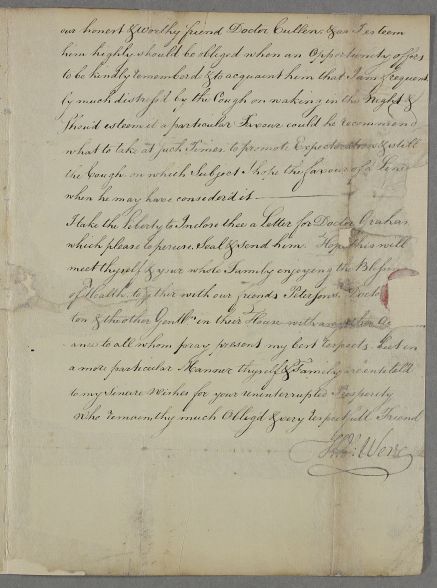 our honest & Worthy friend Doctor Cullen. & as I esteem
him highly should be obliged when an Opportunity offers
to be kindly rememberd & to acquaint him that I am frequent
ly much distress'd by the Cough on waking in the Night &
Shou'd esteem it a particular Favour could he recommend
what to take at such Times to promote Expectoration &
the Cough, on which Subject I hope the favour of a Line
when he may have consider'd it
I take the Liberty to Inclose thee a Letter for Doctor Graham
which please to peruse, Seal & Send him. Hope this will
meet thyself & your whole Family enjoying the Blessing
of Health, together with our friends Peter Doctor
ton & the other Gentn. in their House with
ance to all whom pray present my best respects. But in
a more particular Manner thyself & Family are intitld
to my Sincere Wishes for your uninterrupted Prosperity
Who remain thy much Obligd & very respectfull Friend